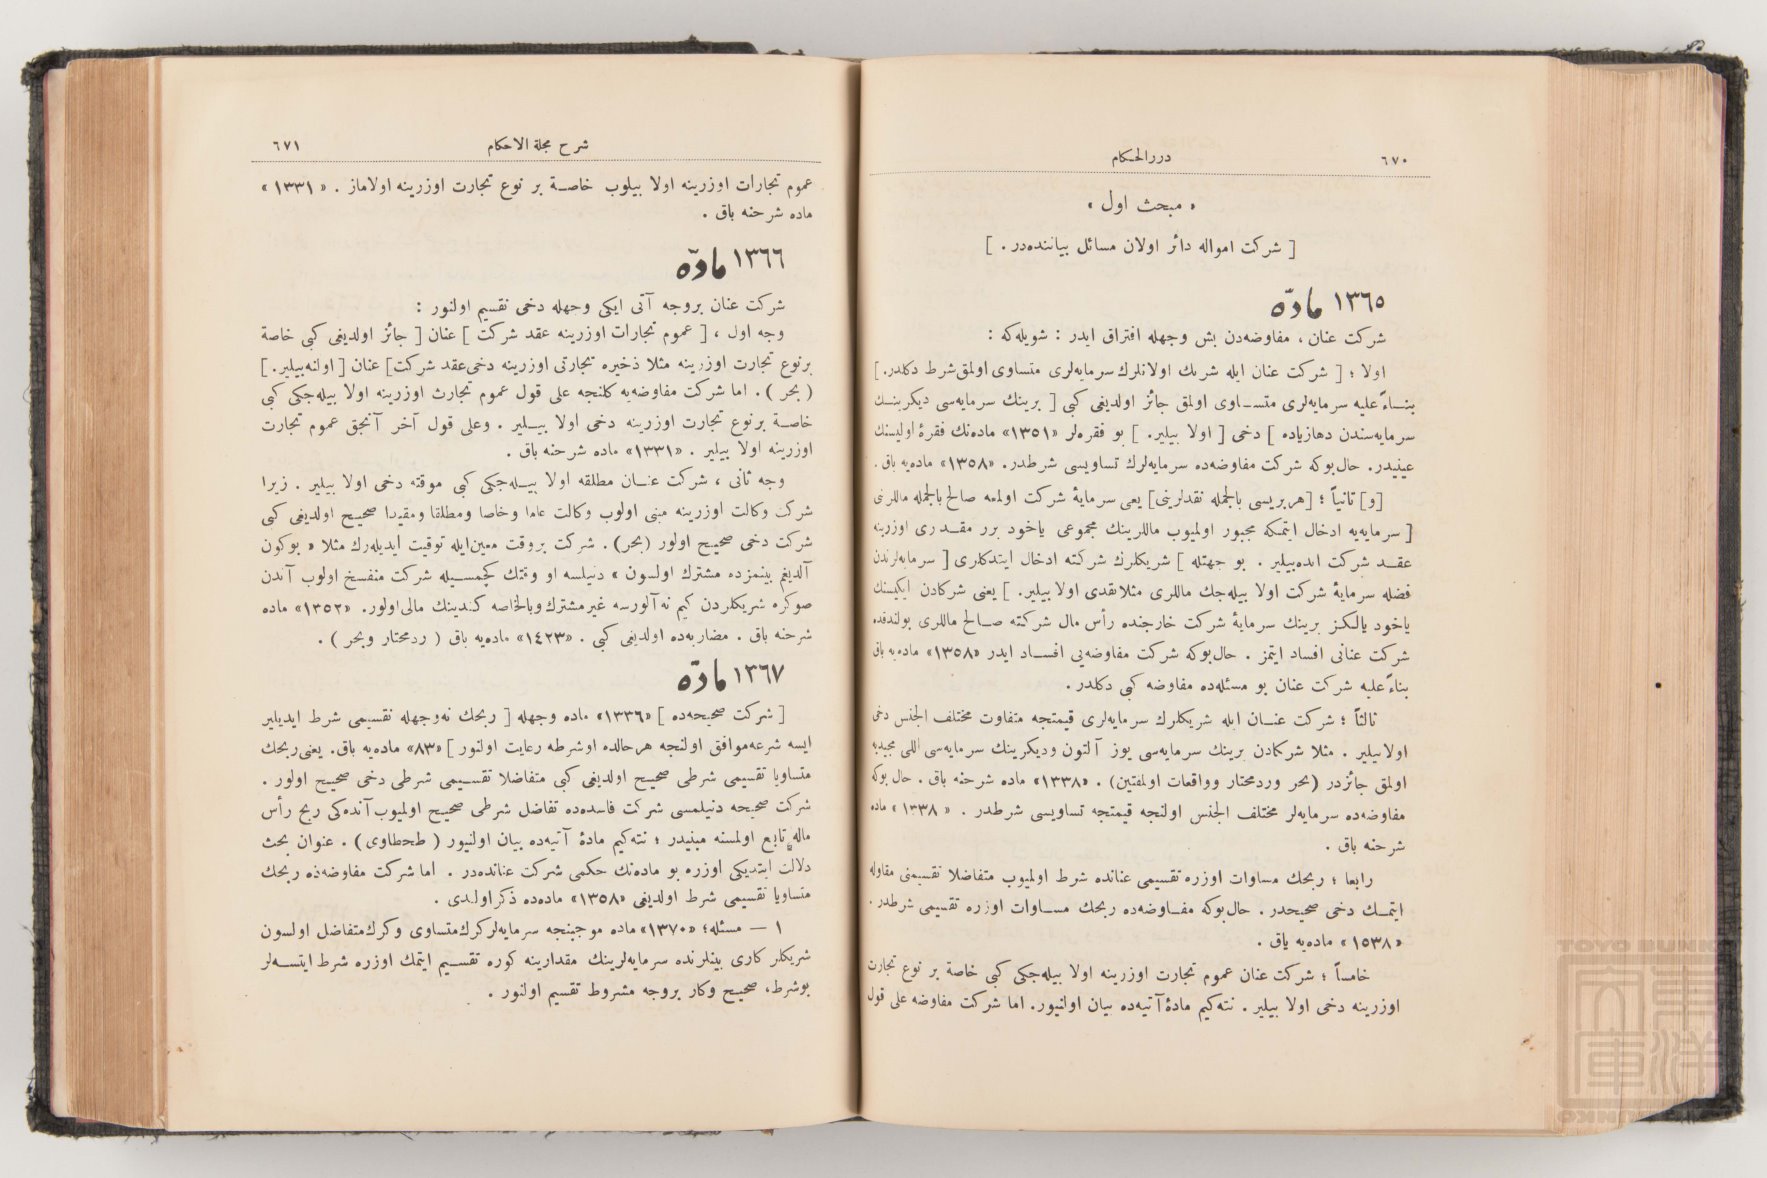 ٦٧٠
دررالحكام
« مبحث اول »
[ شركت امواله دائر اولان مسائل بياننده‌در . ]
١٣٦٥ مادّه
شركت عنان ، مفاوضه‌دن بش وجهله افتراق ايدر : شويله‌كه :
اولا ؛ [ شركت عنان ايله شريك اولانلرك سرمايه‌لرى متساوى اولمق شرط دكلدر. ]
بنــاءً عليه سرمايه‌لرى متســاوى اولمق جائز اولديغى كبى [ برينك سرمايه‌سى ديكرينــك
سرمايه‌سندن دهازياده ] دخى [ اولا بيلير. ] بو فقره‌لر «١٣٥١» ماده‌نك فقرهٔ اوليسنك
عينيدر. حال‌بوكه شركت مفاوضه‌ده سرمايه‌لرك تساويسى شرطدر. «١٣٥٨» ماده‌يه باق .
[و] ثانياً ؛ [هربريسى بالجمله نقدلرينى] يعنى سرمايهٔ شركت اولمغه صالح بالجمله ماللرنى
[ سرمايه‌يه ادخال ايتمكه مجبور اولميوب ماللرينك مجموعى ياخود برر مقــدارى اوزرينه
عقــد شركت ايده‌بيلير . بو جهتله ] شريكلرك شركته ادخال ايتدكلرى [ سرمايه‌لرندن
فضله سرمايهٔ شركت اولا بيله‌جك ماللرى مثلا نقدى اولا بيلير. ] يعنى شركادن ايكيسنك
ياخود يالكز برينك سرمايهٔ شركت خارجنده رأس مال شركته صــالح ماللرى بولندقده
شركت عنانى افساد ايتمز . حال‌بوكه شركت مفاوضه‌يى افســاد ايدر «١٣٥٨» ماده‌يه باق
بناءً عليه شركت عنان بو مسئله‌ده مفاوضه كبى دكلدر .
ثالثاً ؛ شركت عنــان ايله شريكلرك سرمايه‌لرى قيمتجه متفاوت مختلف الجنس دخى
اولابيلير . مثلا شركادن برينك سرمايه‌سى يوز آلتون وديكرينك سرمايه‌سى اللى مجيديه
اولمق جائزدر (بحر وردمحتار وواقعات اولمفتين) . «١٣٣٨» ماده شرحنه باق . حال بوكه
مفاوضه‌ده سرمايه‌لر مختلف الجنس اولنجه قيمتجه تساويسى شرطدر . « ١٣٣٨ » ماده
شرحنه باق .
رابعا ؛ ربحك مساوات اوزره تقسيمى عنانده شرط اولميوب متفاضلا تقسيمنى مقاوله
ايتمــك دخى صحيحدر . حال‌بوكه مفــاوضه‌ده ربحك مســاوات اوزره تقسيمى شرطدر .
«١٥٣٨» ماده‌يه ياق .
خامساً ؛ شركت عنان عموم تجارت اوزرينه اولا بيله‌جكى كبى خاصة بر نوع تجارت
اوزرينه دخى اولا بيلير . نته‌كيم مادهٔ آتيه‌ده بيان اولنيور. اما شركت مفاوضه على قول
شرح مجلة الاحكام
٦٧١
عموم تجارات اوزرينه اولا بيلوب خاصــة بر نوع تجارت اوزرينه اولاماز . «١٣٣١»
ماده شرحنه باق .
١٣٦٦ مادّه
شركت عنان بروجه آتى ايكى وجهله دخى تقسيم اولنور :
وجه اول ، [ عموم تجارات اوزرينه عقد شركت ] عنان [ جائز اولديغى كبى خاصة
برنوع تجارت اوزرينه مثلا ذخيره تجارتى اوزرينه دخى عقد شركت] عنان [ اولنه‌بيلير. ]
( بحر ) . اما شركت مفاوضه‌يه كلنجه على قول عموم تجارت اوزرينه اولا بيله‌جكى كبى
خاصــة برنوع تجارت اوزرينه دخى اولا بيــلير . وعلى قول آخر آنجق عموم تجارت
اوزرينه اولا بيلير . «١٣٣١» ماده شرحنه باق .
وجه ثانى ، شركت عنــان مطلقه اولا بيــله‌جكى كبى موقته دخى اولا بيلير . زيرا
شركت وكالت اوزرينه مبنى اولوب وكالت عاما وخاصا ومطلقا ومقيدا صحيح اولديغى كبى
شركت دخى صحيح اولور (بحر) . شركت بروقت معين‌ايله توقيت ايديله‌رك مثلا « بوكون
آلديغم بينمزده مشترك اولسون » دنيلسه او وقتك كچمســيله شركت منفسخ اولوب آندن
صوكره شريكلردن كيم نه آلورسه غيرمشترك وبالخاصه كنديتك مالى‌اولور. «١٣٥٢» ماده
شرحنه باق . مضاربه‌ده اولديغى كبى . «١٤٢٣» ماده‌يه باق ( ردمحتار وبحر ) .
١٣٦٧ مادّه
[ شركت صحيحه‌ده ] «١٣٣٦» ماده وجهله [ ربحك نه‌وجهله تقسيمى شرط ايديلير
ايسه شرعه‌موافق اولنجه هرحالده اوشرطه رعايت اولنور ] «٨٣» ماده‌يه باق. يعنى ربحك
متساويا تقسيمى شرطى صحيح اولديغى كبى متفاضلا تقســيمى شرطى دخى صحيح اولور .
شركت صحيحه دنيلمسى شركت فاسده‌ده تفاضل شرطى صحيح اولميوب آنده‌كى ربح رأس
ماله تابع اولمسنه مبنيدر ؛ نته‌كيم مادهٔ آتيه‌ده بيان اولنيور ( طحطاوى ) . عنوان بحث
دلالت ايتديكى اوزره بو ماده‌نك حكمى شركت عنانده‌در . اما شركت مفاوضه‌ده ربحك
متساويا تقسيمى شرط اولديغى «١٣٥٨» ماده‌ده ذكر اولندى .
١ — مسئله؛ «١٣٧٠» ماده موجبنجه سرمايه‌لركرك متساوى وكرك‌متفاضل اولسون
شريكلر كارى بينلرنده سرمايه‌لرينك مقدارينه كوره تقســيم ايتمك اوزره شرط ايتســه‌لر
بوشرط، صحيح وكار بروجه مشروط تقسيم اولنور .
TOYO BUNKO
東洋文庫